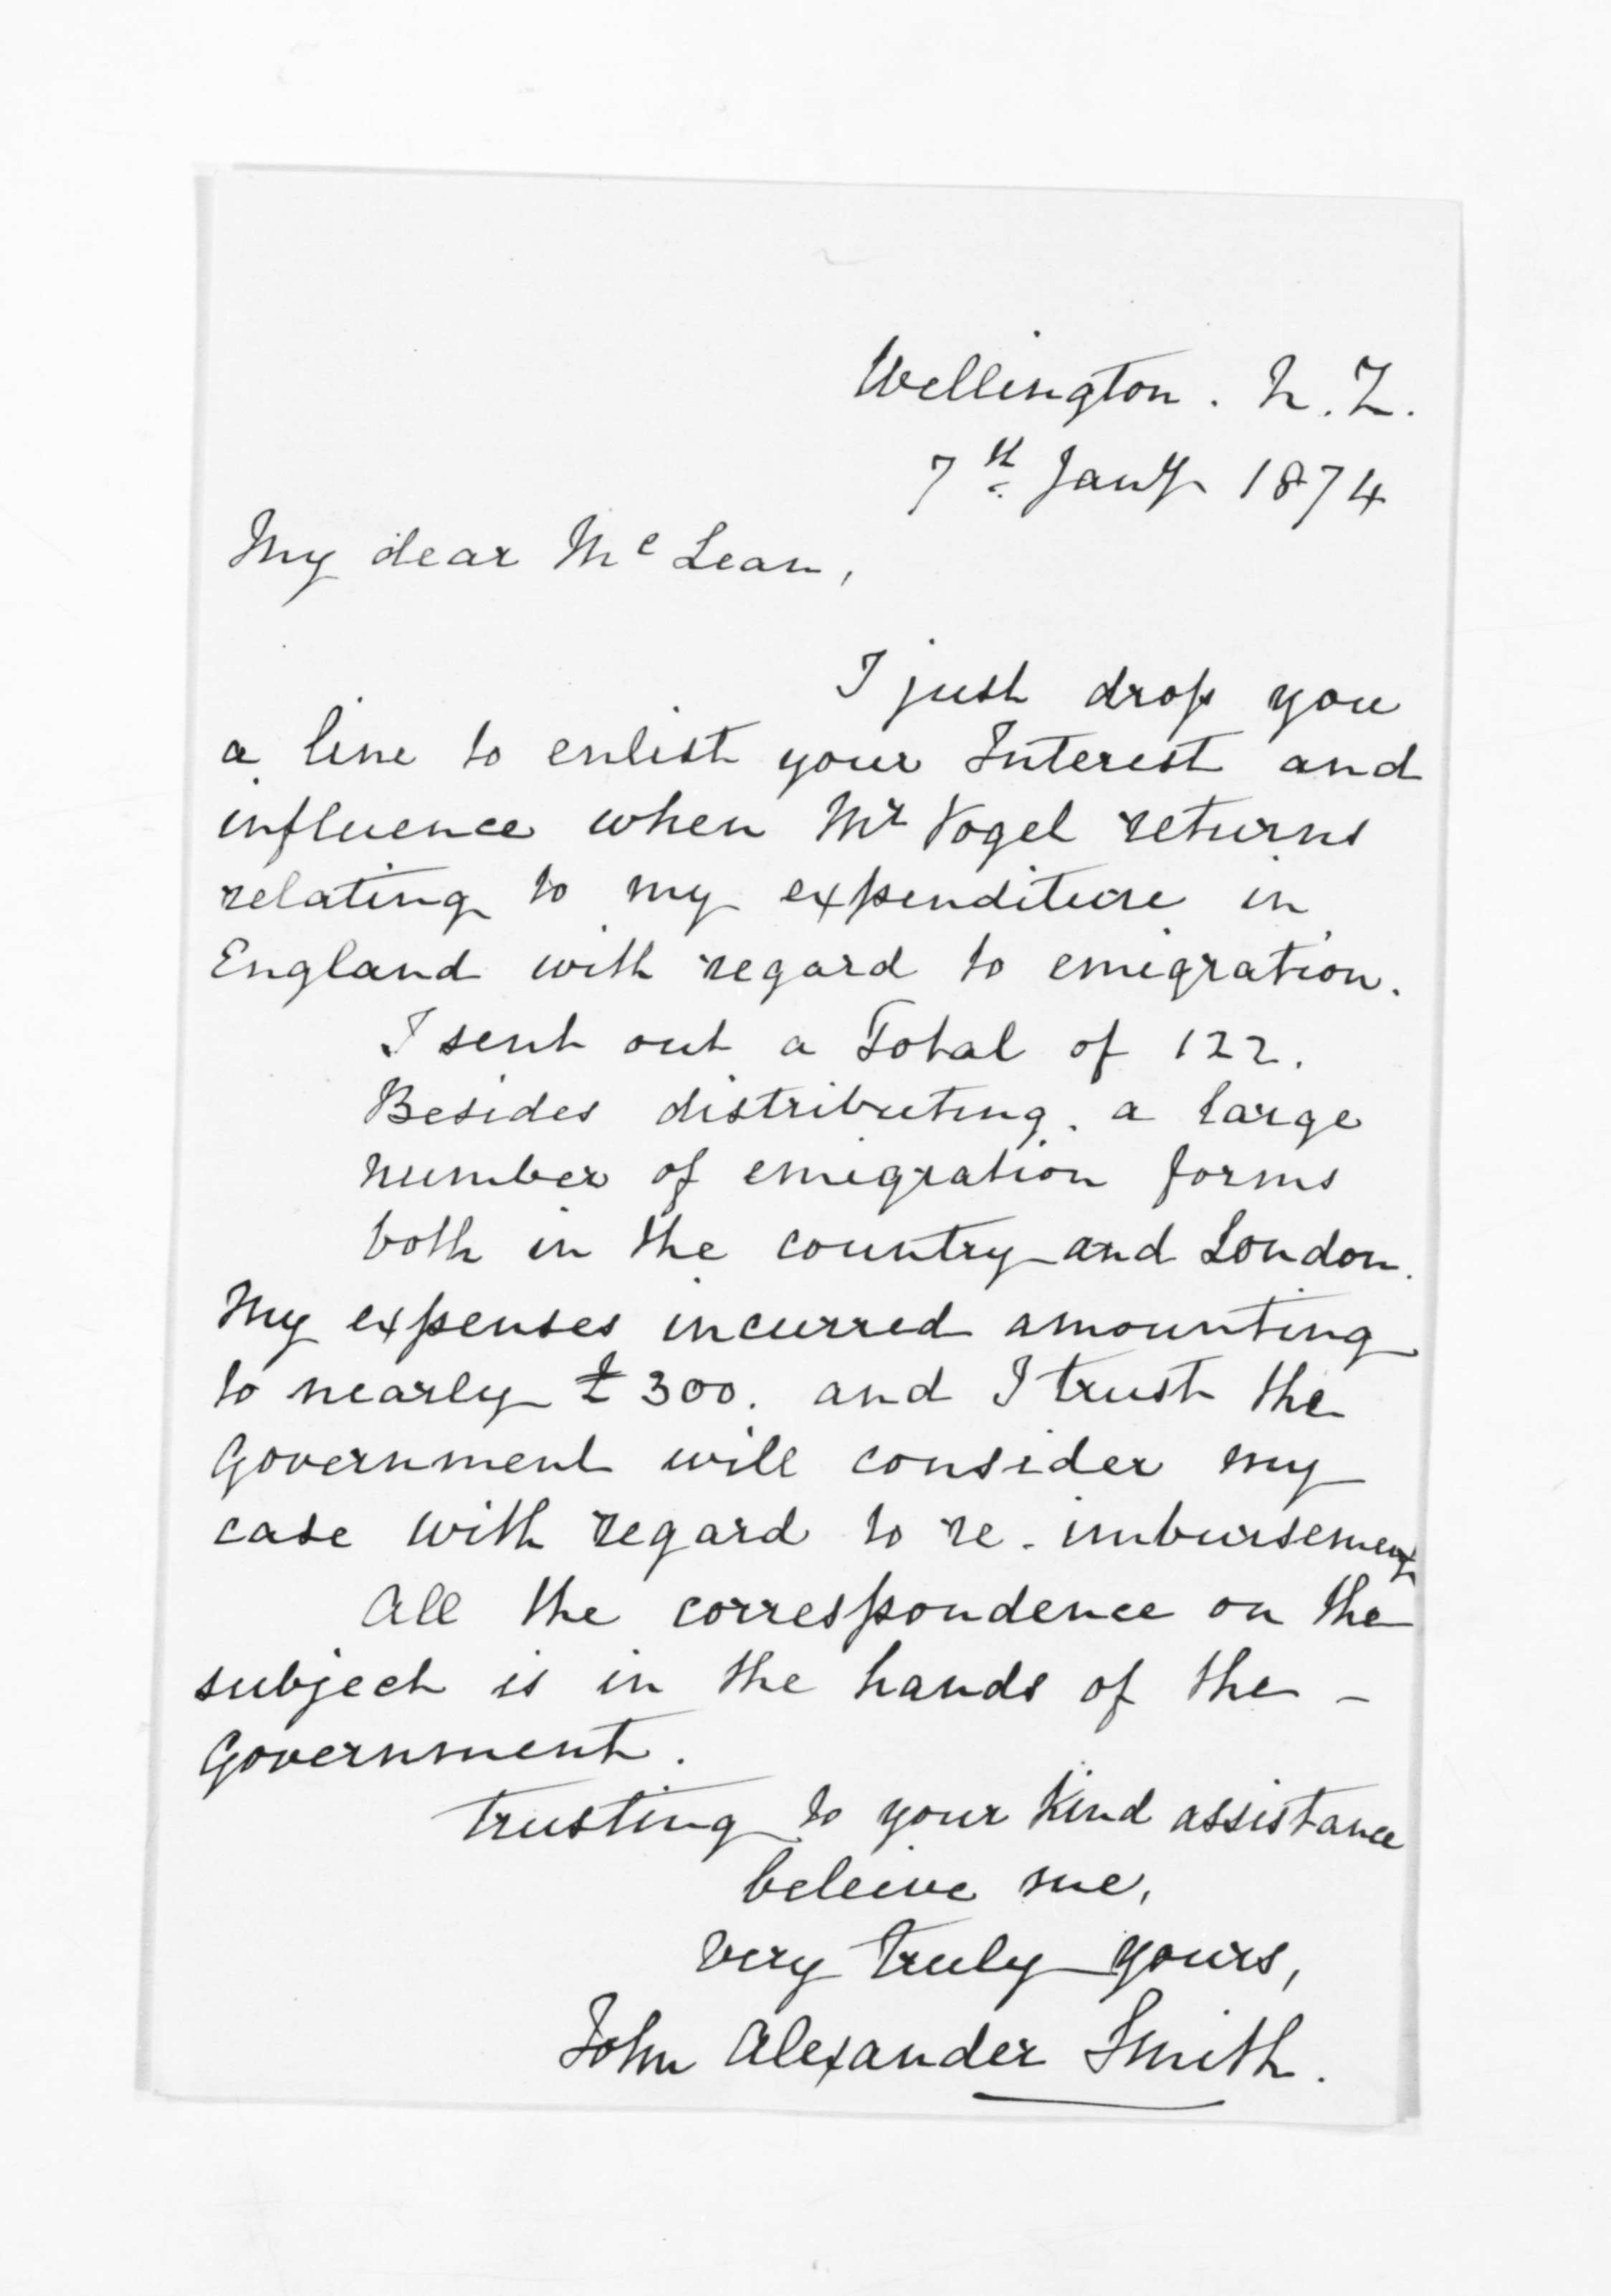 Wellington. N.Z.
7th Jany 1874
My dear McLean,
I just drop you
a line to enlist your Interest and
influence when Mr Vogel returns
relating to my expenditure in
England with regard to emigration.
I sent out a Total of 122.
Besides distributing a large
number of emigration forms
both in the country and London.
My expenses incurred amounting
to nearly £300. and I trust the
Government will consider my
case with regard to re-imbursement
All the correspondence on the
subject is in the hands of the -
Government.
Trusting to your kind assistance
beleive me,
very truly yours,
John Alexander Smith.